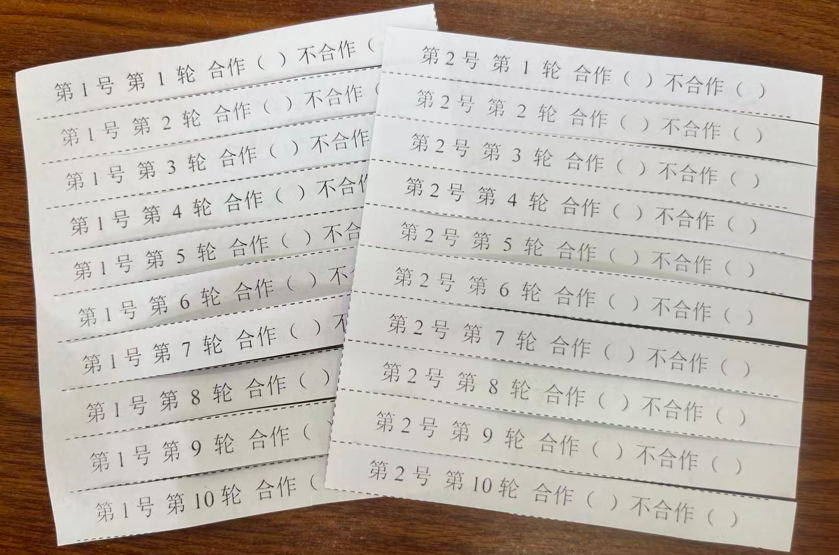 第 1 号 第 1 轮 合作（ ）不合作（
第 1 号 第 2 轮 合作（ ）不合作（
第 1 号 第 3 轮 合作（ ）不合作
第 1 号 第 4 轮 合作（ ）不合作
第 1 号 第 5 轮 合作（ ）不合
第 1 号 第 6 轮 合作（ ）不
第 1 号 第 7 轮 合作（ ）不
第 1 号 第 8 轮 合作（ ）
第 1 号 第 9 轮 合作（ ）
第 1 号 第 10 轮 合作（
第 2 号 第 1 轮 合作（ ）不合作（ ）
第 2 号 第 2 轮 合作（ ）不合作（ ）
第 2 号 第 3 轮 合作（ ）不合作（ ）
第 2 号 第 4 轮 合作（ ）不合作（ ）
第 2 号 第 5 轮 合作（ ）不合作（ ）
第 2 号 第 6 轮 合作（ ）不合作（ ）
第 2 号 第 7 轮 合作（ ）不合作（ ）
第 2 号 第 8 轮 合作（ ）不合作（ ）
第 2 号 第 9 轮 合作（ ）不合作（ ）
第 2 号 第 10 轮 合作（ ）不合作（ ）